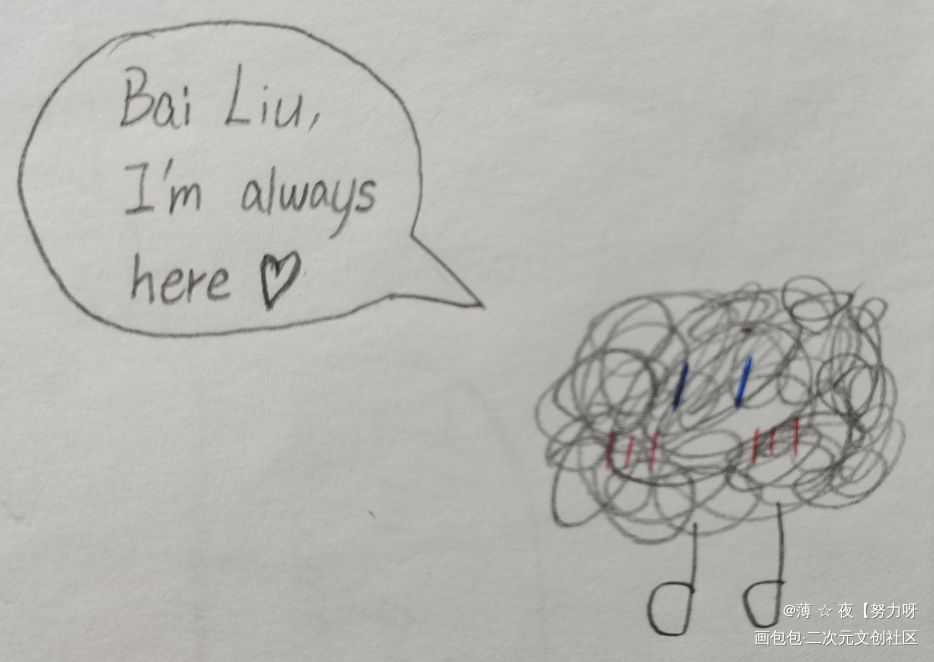 Bai Liu,
I'm always
here ♡
@薄 ☆ 夜【努力呀
画包包·二次元文创社区